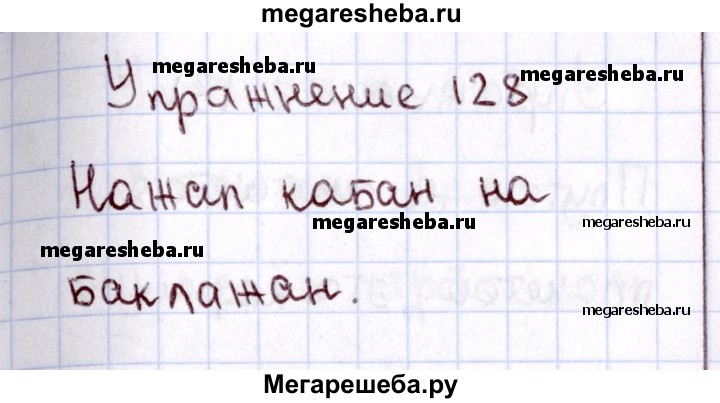 megaresheba.ru
megaresheba.ru megaresheba.ru
Упражнение 128
Нажап кабан на
megaresheba.ru megaresheba.ru
megaresheba.ru
баклажан.
megaresheba.ru
Мегарешеба.ру